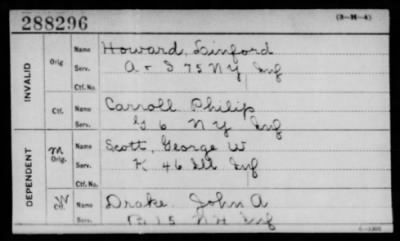 288296
(3-M-4)
INVALID
Orig
Name Howard, Linford
Serv. A + I 75 N Y Inf
Ctf. No.
Ctf.
Name Carroll Philip
Serv. G 6 N Y Inf
DEPENDENT
M
Orig.
Name Scott, George W
Serv. K 46 Ill Inf
Ctf. No.
W
Ctf.
Name Drake John A
Serv. 15 N H Inf